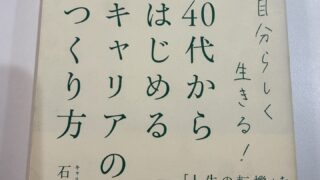 自分らしく
生きる!
40代から
はじめる
キャリアの
つくり方
石
「人生の転機」を